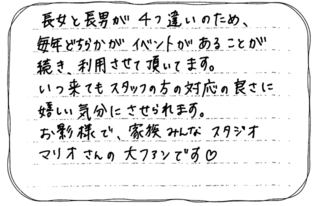 長女と長男が4つ違いのため、
毎年どちらかがイベントがあることが
続き、利用させて頂いてます。
いつ来てもスタッフの方の対応の良さに
嬉しい気分にさせられます。
お影様で、家族みんなスタジオ
マリオさんの大ファンです♡